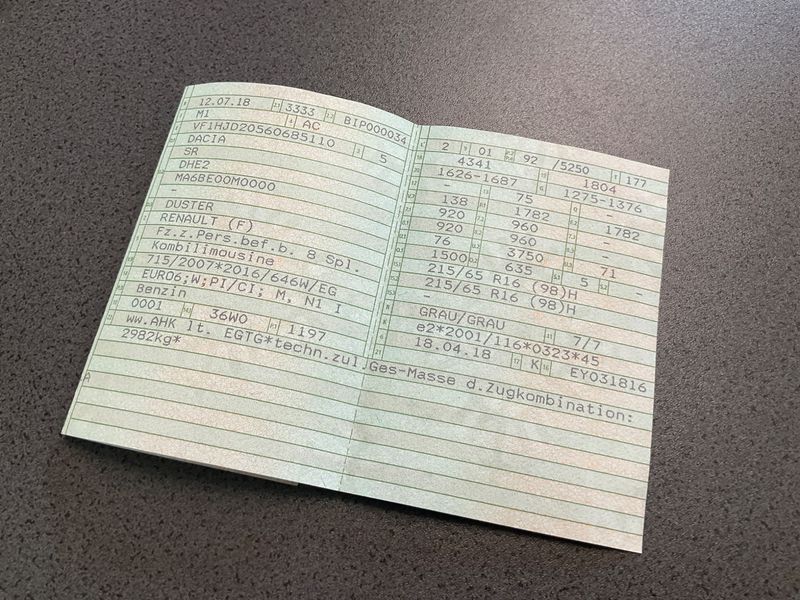 12.07.18 3333 BIP000034
M1 AC
VF1HJD20560685110 5
DACIA
SR
DHE2
MA6BE00M0000
-
DUSTER
RENAULT (F)
Fz.z.Pers.bef.b. 8 Spl.
Kombilimousine
715/2007*2016/646W/EG
EURO6;W;PI/CI; M, N1 I
Benzin
0001 36W0 1197
ww.AHK lt. EGTG*techn.zul.Ges-Masse d.Zugkombination:
2982kg*
A
2 01 92 /5250 177
4341 1804
1626-1687 1275-1376
- 75 -
138 1782 1782
920 960 -
920 960
76 3750 71
1500 635 5 -
215/65 R16 (98)H
215/65 R16 (98)H
-
GRAU/GRAU 7/7
e2*2001/116*0323*45
18.04.18 K EY031816